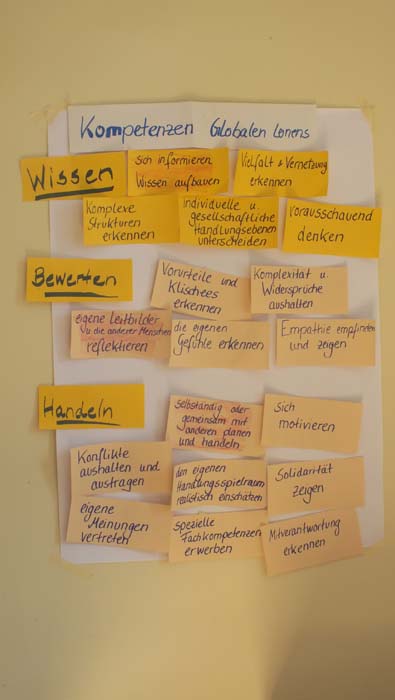 Kompetenzen Globalen Lernens
Wissen
Sich informieren,
Wissen aufbauen
Vielfalt & Vernetzung
erkennen
Komplexe
Strukturen
erkennen
individuelle u.
gesellschaftliche
Handlungsebenen
unterscheiden
vorausschauend
denken
Bewerten
Vorurteile und
Klischees
erkennen
Komplexität u.
Widersprüche
aushalten
eigene Leitbilder
u. die anderer Menschen
reflektieren
die eigenen
Gefühle erkennen
Empathie empfinden
und zeigen
Handeln
selbständig oder
gemeinsam mit
anderen planen
und handeln
Sich
motivieren
Konflikte
aushalten und
austragen
den eigenen
Handlungsspielraum
realistisch einschätzen
Solidarität
zeigen
eigene
Meinungen
vertreten
spezielle
Fachkompetenzen
erwerben
Mitverantwortung
erkennen